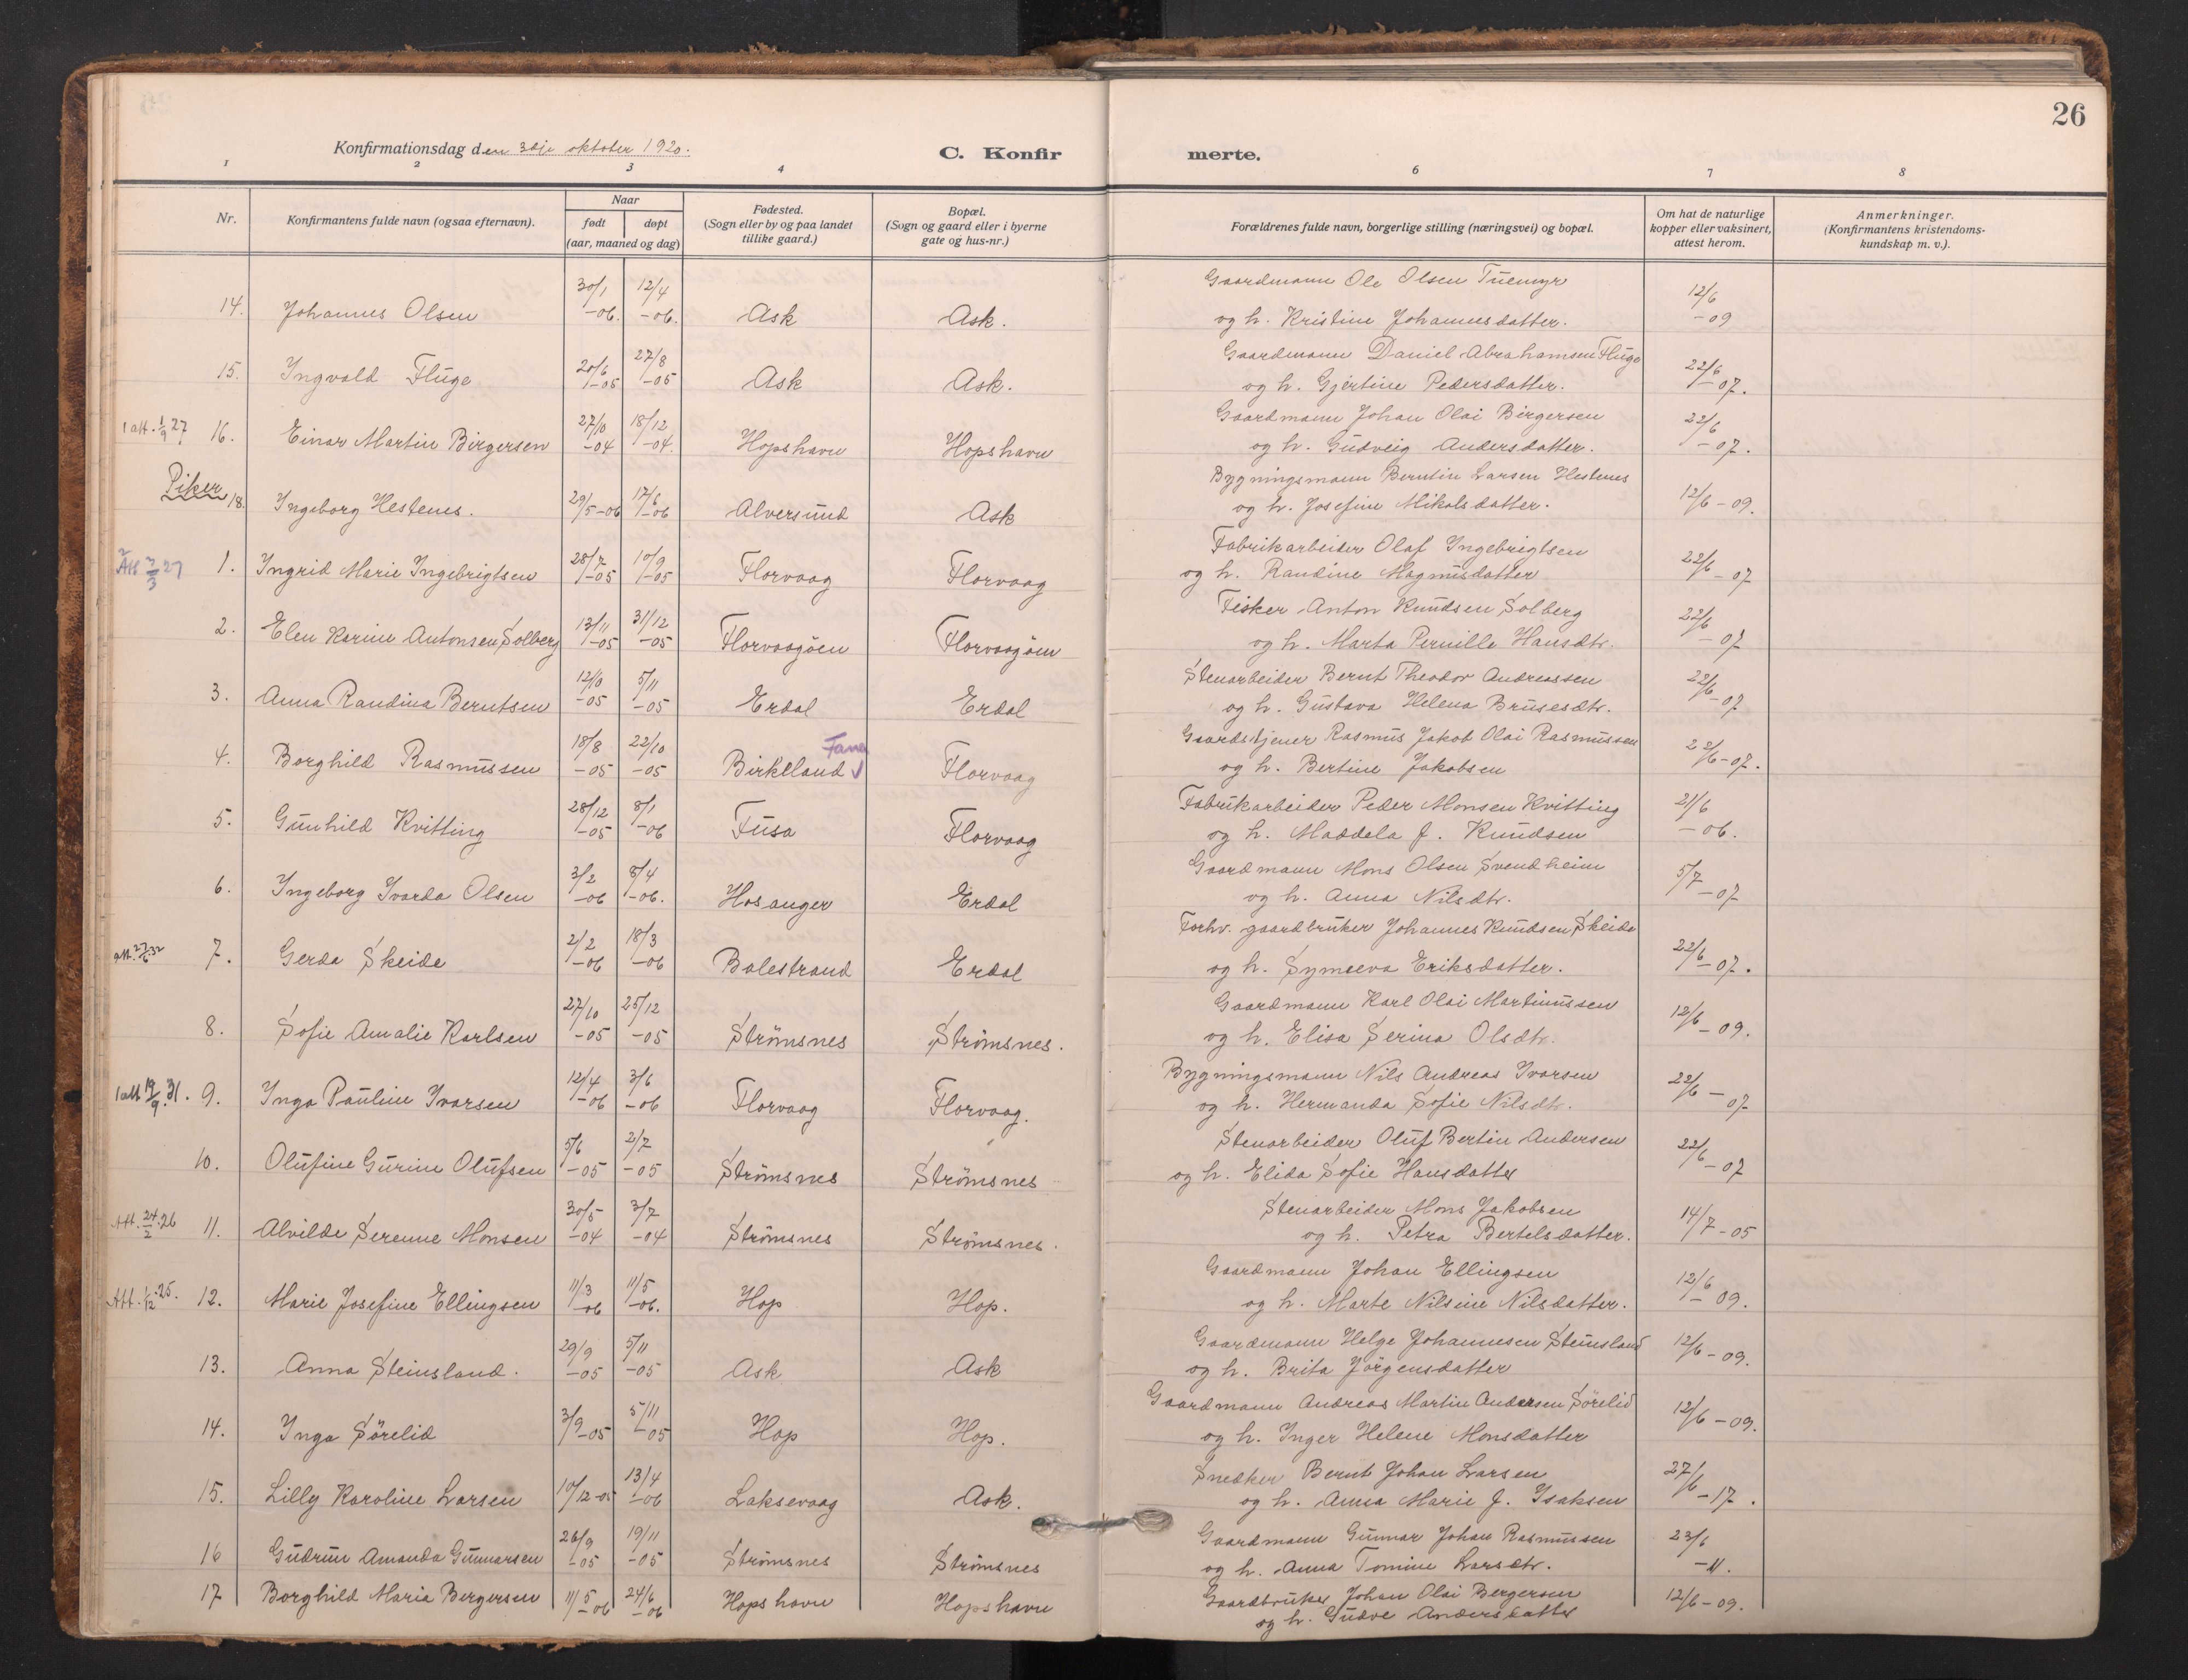 26
Konfirmationsdag den 3dje oktober 1920.
C. Konfirmerte.
1 2 3 4 6 7 8
Nr. | Konfirmantens fulde navn (ogsaa efternavn). | Naar født døpt (aar, maaned og dag) | Fødested. (Sogn eller by og paa landet tillike gaard.) | Bopæl. (Sogn og gaard eller i byerne gate og hus-nr.) | Forældrenes fulde navn, borgerlige stilling (næringsvei) og bopæl. | Om hat de naturlige kopper eller vaksinert, attest herom. | Anmerkninger. (Konfirmantens kristendoms-kundskap m. v.).
14. Johannes Olsen 30/1 -06. 12/4 -06. Ask Ask. Gaardmann Ole Olsen Tuemyr og h. Kristine Johannesdatter. 12/6 -09
15. Ingvald Fluge 20/6 -05 27/8 -05 Ask Ask. Gaardmann Daniel Abrahamsen Fluge og h. Gjertine Pedersdatter. 22/6 -07.
1 att. 1/9 27 16. Einar Martin Birgersen 27/10 -04 18/12 -04. Hopshavn Hopshavn Gaardmann Johan Olai Birgersen og h. Gudveig Andersdatter. 22/6 -07.
Piker
18. Ingeborg Hestenes. 29/5-06 17/6 -06 Alversund Ask Bygningsmann Berntin Larsen Hestenes og h. Josefine Mikalsdatter. 12/6-09.
Att 2/3 27 1. Ingrid Marie Ingebrigtsen 28/7 -05 10/9 -05 Florvaag Florvaag Fabrikarbeider Olaf Ingebrigtsen og h. Randine Magnusdatter 22/6-07
2. Elen Karine Antonsen Solberg 13/11 -05 31/12 -05 Florvaagöen Florvaagöen Fisker Anton Knudsen Solberg og h. Marta Pernille Hansdtr. 22/6 -07
3. Anna Randina Berntsen 12/10 -05 5/11 -05 Erdal Erdal Stenarbeider Bernt Theodor Andreassen og h. Gustava Helena Brusesdtr. 22/6-07
4. Borghild Rasmussen 18/8 -05 22/10 -05 Birkeland Fana Florvaag Gaardstjener Rasmus Jakob Olai Rasmussen og h. Bertine Jakobsen 22/6-07.
5. Gunhild Kvitting 28/12 -05 8/1 -06 Fusa Florvaag Fabrikarbeider Peder Monsen Kvitting og h. Maddela J. Knudsen 21/6 -06.
6. Ingeborg Ivarda Olsen 3/2 -06 8/4 -06. Hosanger Erdal Gaardmann Mons Olsen Svendheim og h. Anna Nilsdtr. 5/7-07
att. 27/6 32 7. Gerda Skeide 2/2 -06 18/3 -06 Balestrand Erdal Forhv. gaardbruker Johannes Knudsen Skeide og h. Synneva Eriksdatter. 22/6-07.
8. Sofie Amalie Karlsen 27/10 -05 25/12 -05 Strömsnes Strömsnes. Gaardmann Karl Olai Martinussen og h. Elisa Serina Olsdtr. 12/6-09.
1 att 19/9.31. 9. Inga Pauline Ivarsen 12/4 -06 3/6 -06 Florvaag Florvaag. Bygningsmann Nils Andreas Ivarsen og h. Hermanda Sofie Nilsdtr. 22/6-07
10. Olufine Gurine Olufsen 5/6 -05 2/7 -05 Strömsnes Strömsnes Stenarbeider Oluf Bertin Andersen og h. Elida Sofie Hansdatter 22/6-07
Att. 24/2.26 11. Alvilde Serenne Monsen 30/5 -04 3/7 -04 Strömsnes Strömsnes. Stenarbeider Mons Jakobsen og h. Petra Bertelsdatter. 14/7-05
Att. 1/12 25. 12. Marie Josefine Ellingsen 11/3 -06 11/5 -06. Hop Hop. Gaardmann Johan Ellingsen og h. Marte Nilsine Nilsdatter. 12/6-09.
13. Anna Steinsland. 29/9 -05 5/11 -05 Ask Ask Gaardmann Helge Johannesen Steinsland og h. Brita Jörgensdatter 12/6-09.
14. Inga Sörelid 3/9-05 5/11 -05 Hop Hop. Gaardmann Andreas Martin Andersen Sörelid og h. Inger Helene Monsdatter 12/6-09.
15. Lilly Karoline Larsen 10/12-05 13/4 -06 Laksevaag Ask. Snedker Bernt Johan Larsen og h. Anna Marie J. Isaksen 27/6-17.
16 Gudrun Amanda Gunnarsen 26/9 -05 19/11 -05 Strömsnes Strömsnes Gaardmann Gunnar Johan Rasmussen og h. Anna Tomine Larsdtr. 23/6 -11.
17 Borghild Maria Bergersen 11/5-06 24/6 -06 Hopshavn Hopshavn Gaardbruker Johan Olai Bergersen og h. Gudve Andersdatter 12/6-09.